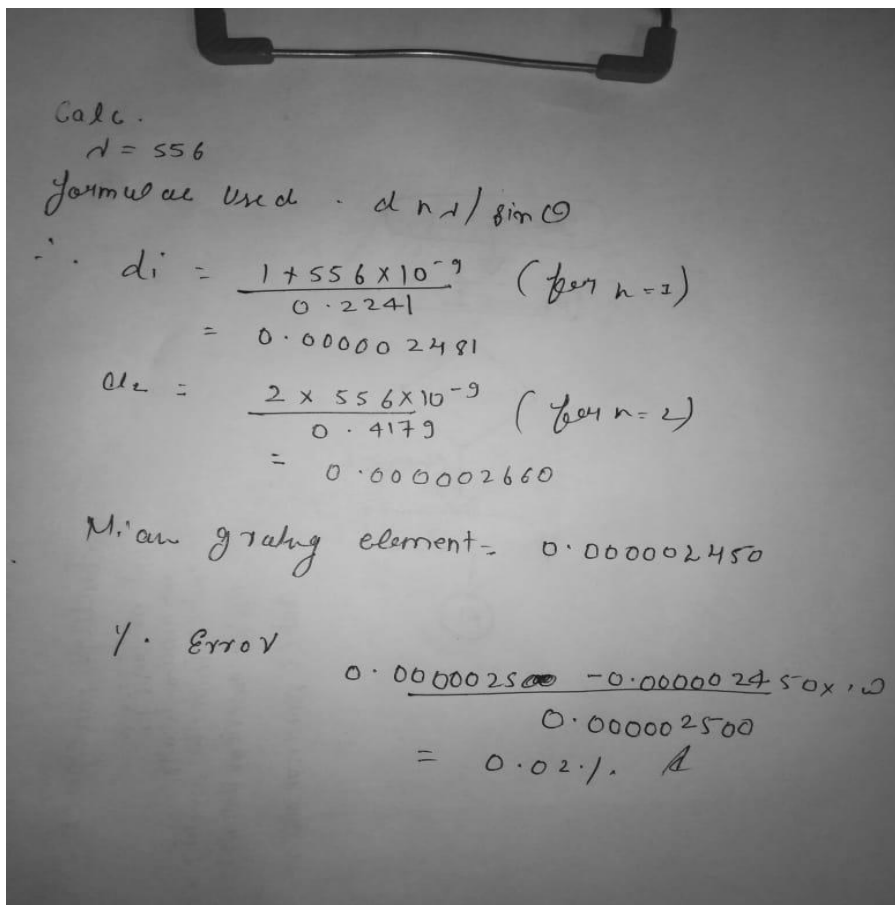 Calc.
λ = 556
formulae used . d nλ/ sin θ
∴ di = 1 + 556 × 10⁻⁹ (for n = 1)
0.2241
= 0.000002481
d2 = 2 × 556 × 10⁻⁹ (for n = 2)
0.4179
= 0.000002660
Mean grating element = 0.000002450
%. Error
0.000002500 - 0.000002450 × 100
0.000002500
= 0.02 %.